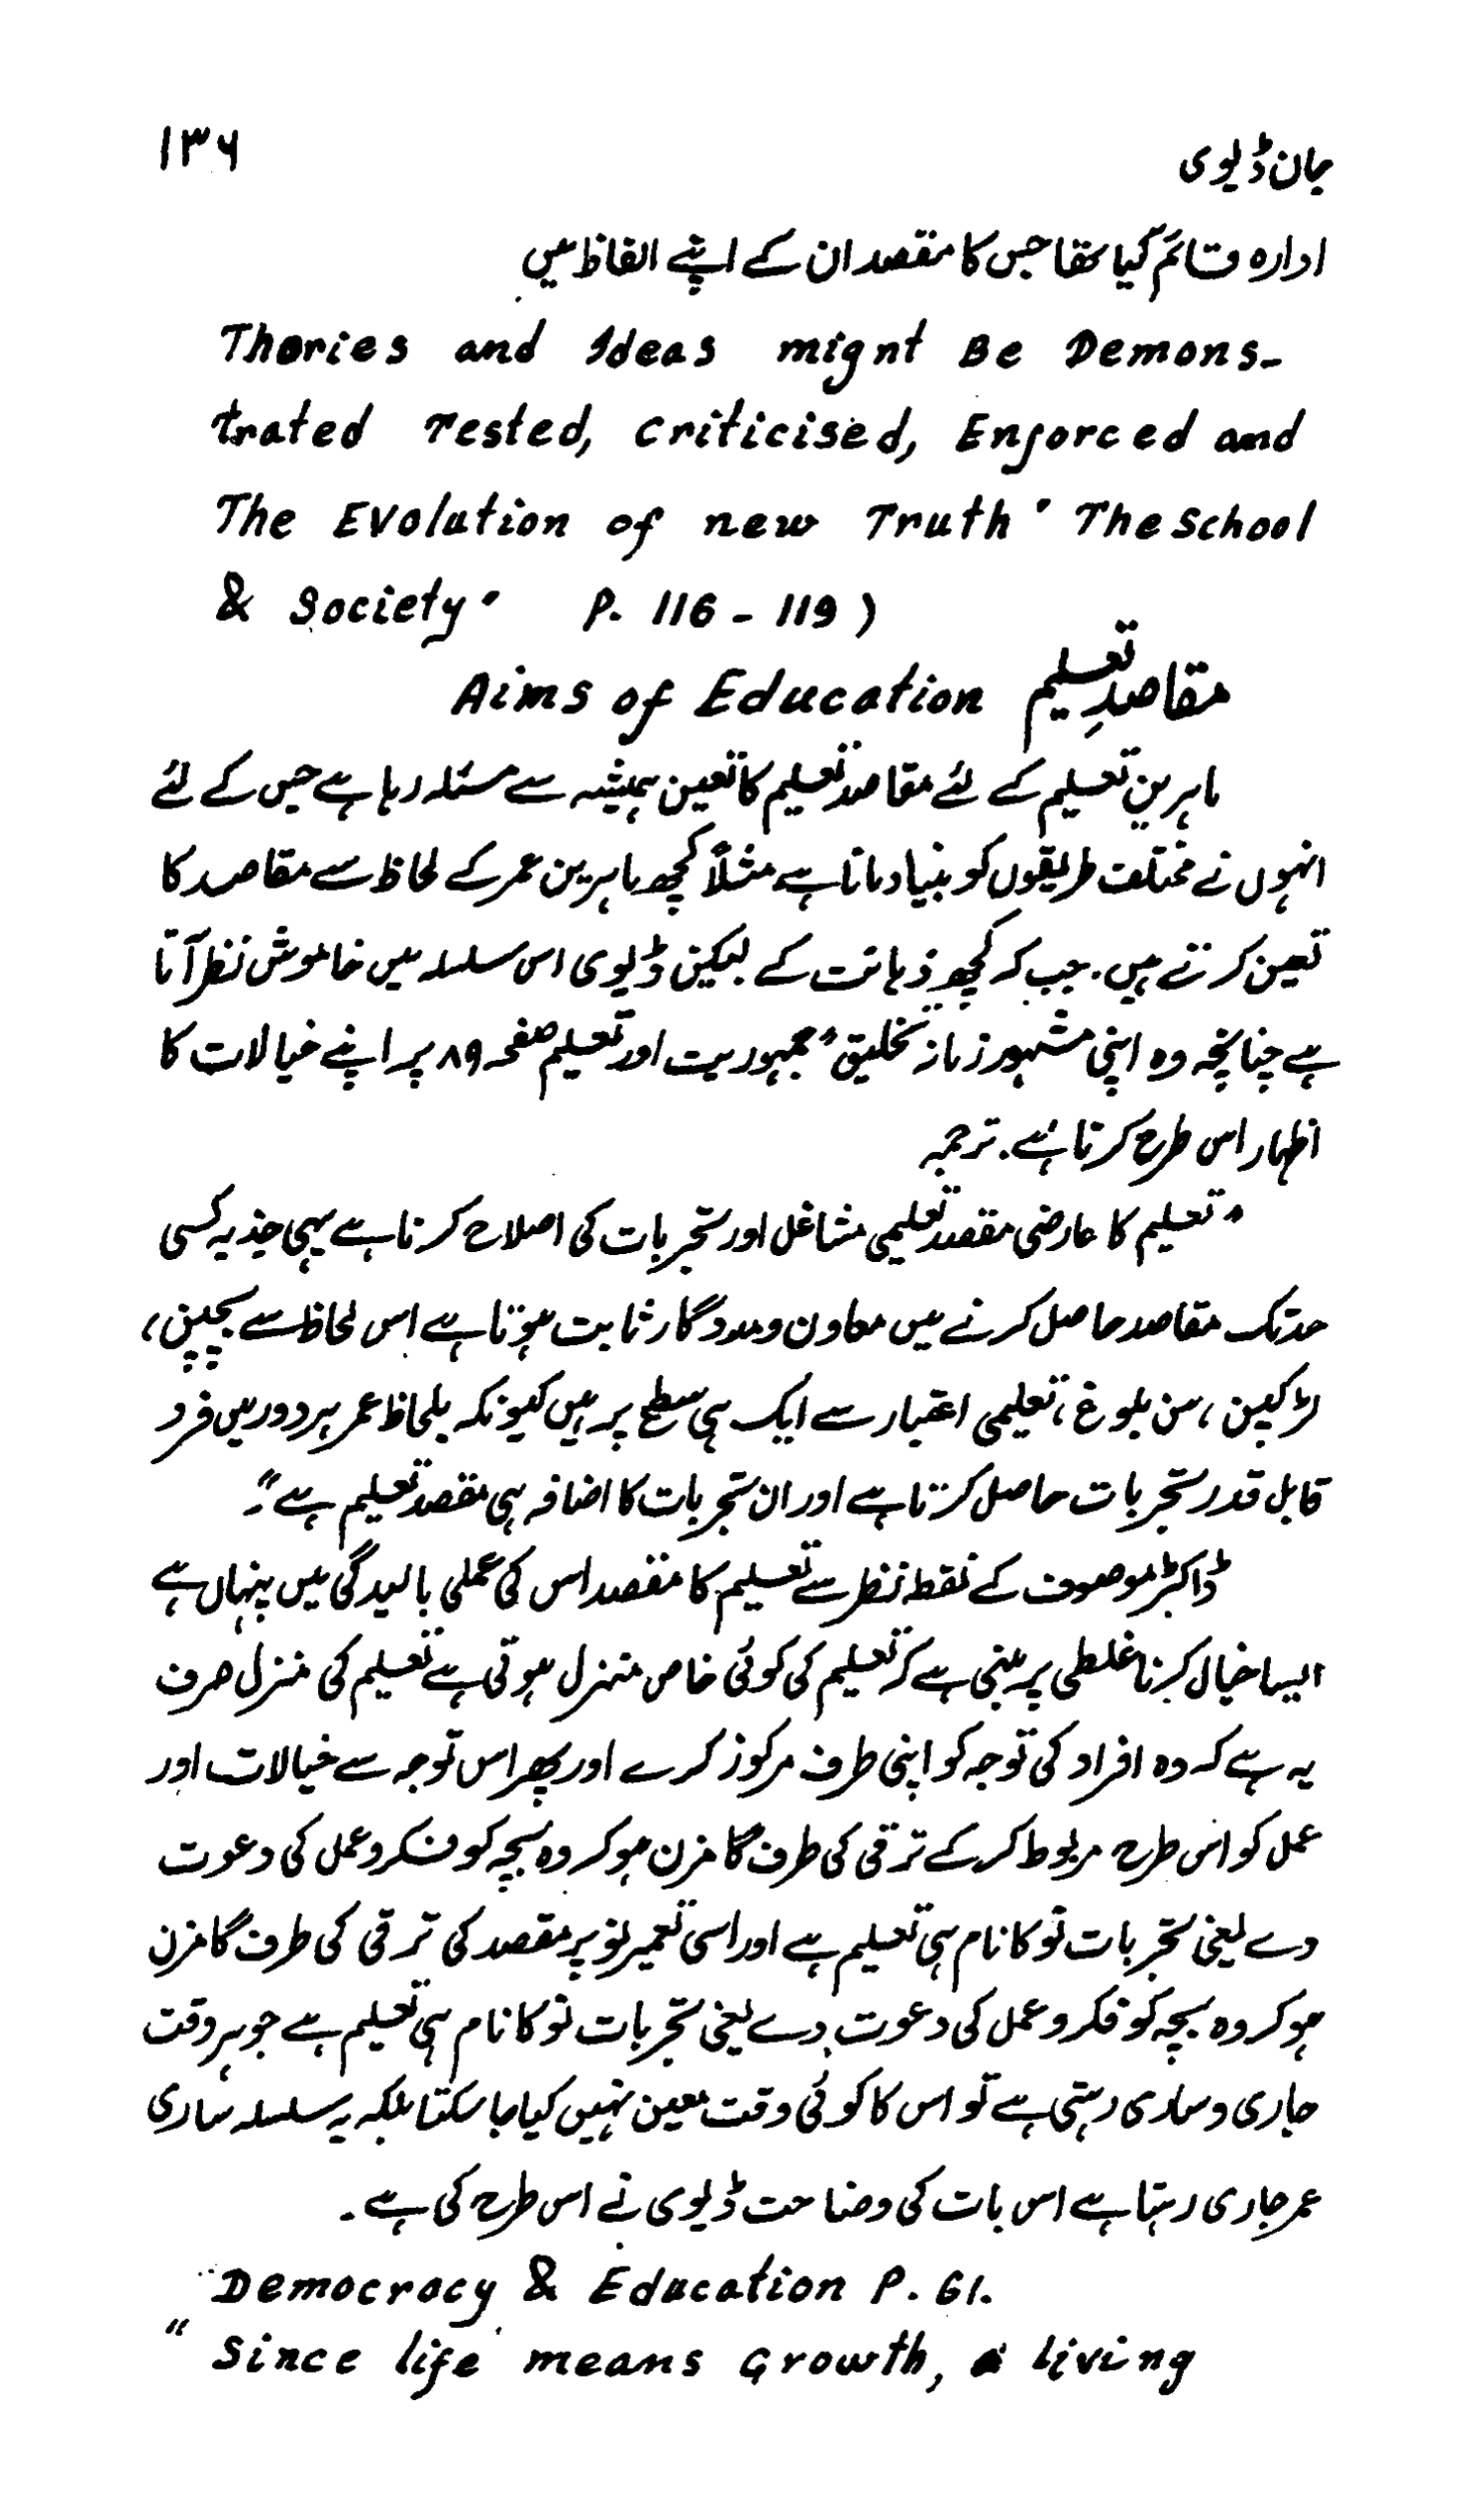 جان ڈیوی ۱۳۶
ادارہ قائم کیا تھا جس کا مقصد ان کے اپنے الفاظ میں
Thories and Ideas mignt Be Demons-
trated Tested, criticised, Enforced and
The Evolution of new Truth" The School
& Society" P. 116 - 119 )
مقاصدِ تعلیم Aims of Education
ماہرین تعلیم کے لئے مقاصد تعلیم کا تعین ہمیشہ سے مسئلہ رہا ہے جس کے لئے
انہوں نے مختلف طریقوں کو بنیاد مانا ہے مثلاً کچھ ماہرین عمر کے لحاظ سے مقاصد کا
تعین کرتے ہیں۔ جب کہ کچھ ذہانت کے لیکن ڈیوی اس سلسلہ میں خاموش نظر آتا
ہے چنانچہ وہ اپنی مشہور زمانہ تخلیق "جمہوریت اور تعلیم صفحہ ۸۹ پر اپنے خیالات کا
اظہار اس طرح کرتا ہے۔ ترجمہ
"تعلیم کا عارضی مقصد تعلیمی مشاغل اور تجربات کی اصلاح کرنا ہے یہی جذبہ کسی
حد تک مقاصد حاصل کرنے میں معاون و مددگار ثابت ہوتا ہے اس لحاظ سے بچپن،
لڑکپن، سن بلوغ، تعلیمی اعتبار سے ایک ہی سطح پر ہیں کیونکہ بلحاظ عمر ہر دور میں فرد
قابل قدر تجربات حاصل کرتا ہے اور ان تجربات کا اضافہ ہی مقصد تعلیم ہے"۔
ڈاکٹر موصوف کے نقطہ نظر سے تعلیم کا مقصد اس کی عملی بالیدگی میں پنہاں ہے
ایسا خیال کرنا غلطی پر مبنی ہے کہ تعلیم کی کوئی خاص منزل ہوتی ہے تعلیم کی منزل صرف
یہ ہے کہ وہ افراد کی توجہ کو اپنی طرف مرکوز کرے اور پھر اس توجہ سے خیالات اور
عمل کو اس طرح مربوط کر کے ترقی کی طرف گامزن ہو کر وہ بچہ کو فکر و عمل کی دعوت
دے یعنی تجربات نو کا نام ہی تعلیم ہے اور اسی تعمیر نو پر مقصد کی ترقی کی طرف گامزن
ہو کر وہ بچہ کو فکر و عمل کی دعوت دے یعنی تجربات نو کا نام ہی تعلیم ہے جو ہر وقت
جاری و ساری رہتی ہے تو اس کا کوئی وقت معین نہیں کیا جا سکتا بلکہ یہ سلسلہ ساری
عمر جاری رہتا ہے اس بات کی وضاحت ڈیوی نے اس طرح کی ہے۔
Democracy & Education P. 61.
" Since life means Growth, a living